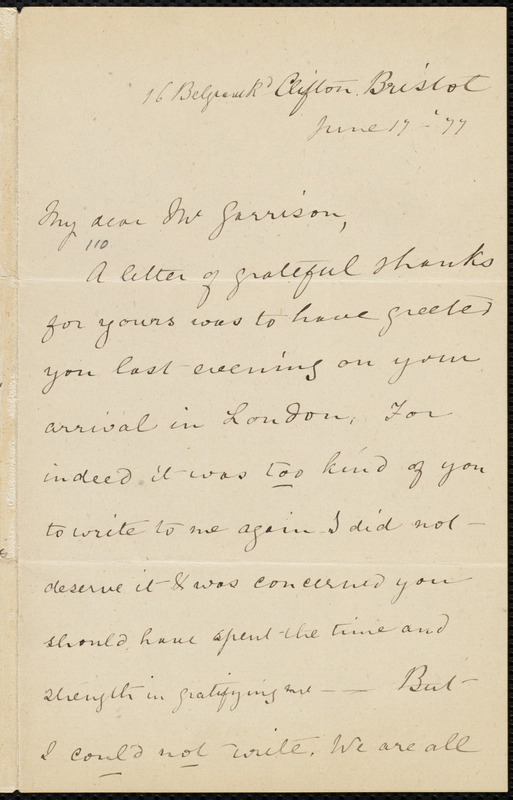 16 Belgrave Rd Clifton. Bristol
June 17 - '77
My dear Mr Garrison,
110
A letter of grateful thanks
for yours was to have greeted
you last evening on your
arrival in London. For
indeed it was too kind of you
to write to me again I did not -
deserve it & was concerned you
should have spent the time and
strength in gratifying me - — But -
I could not write. We are all